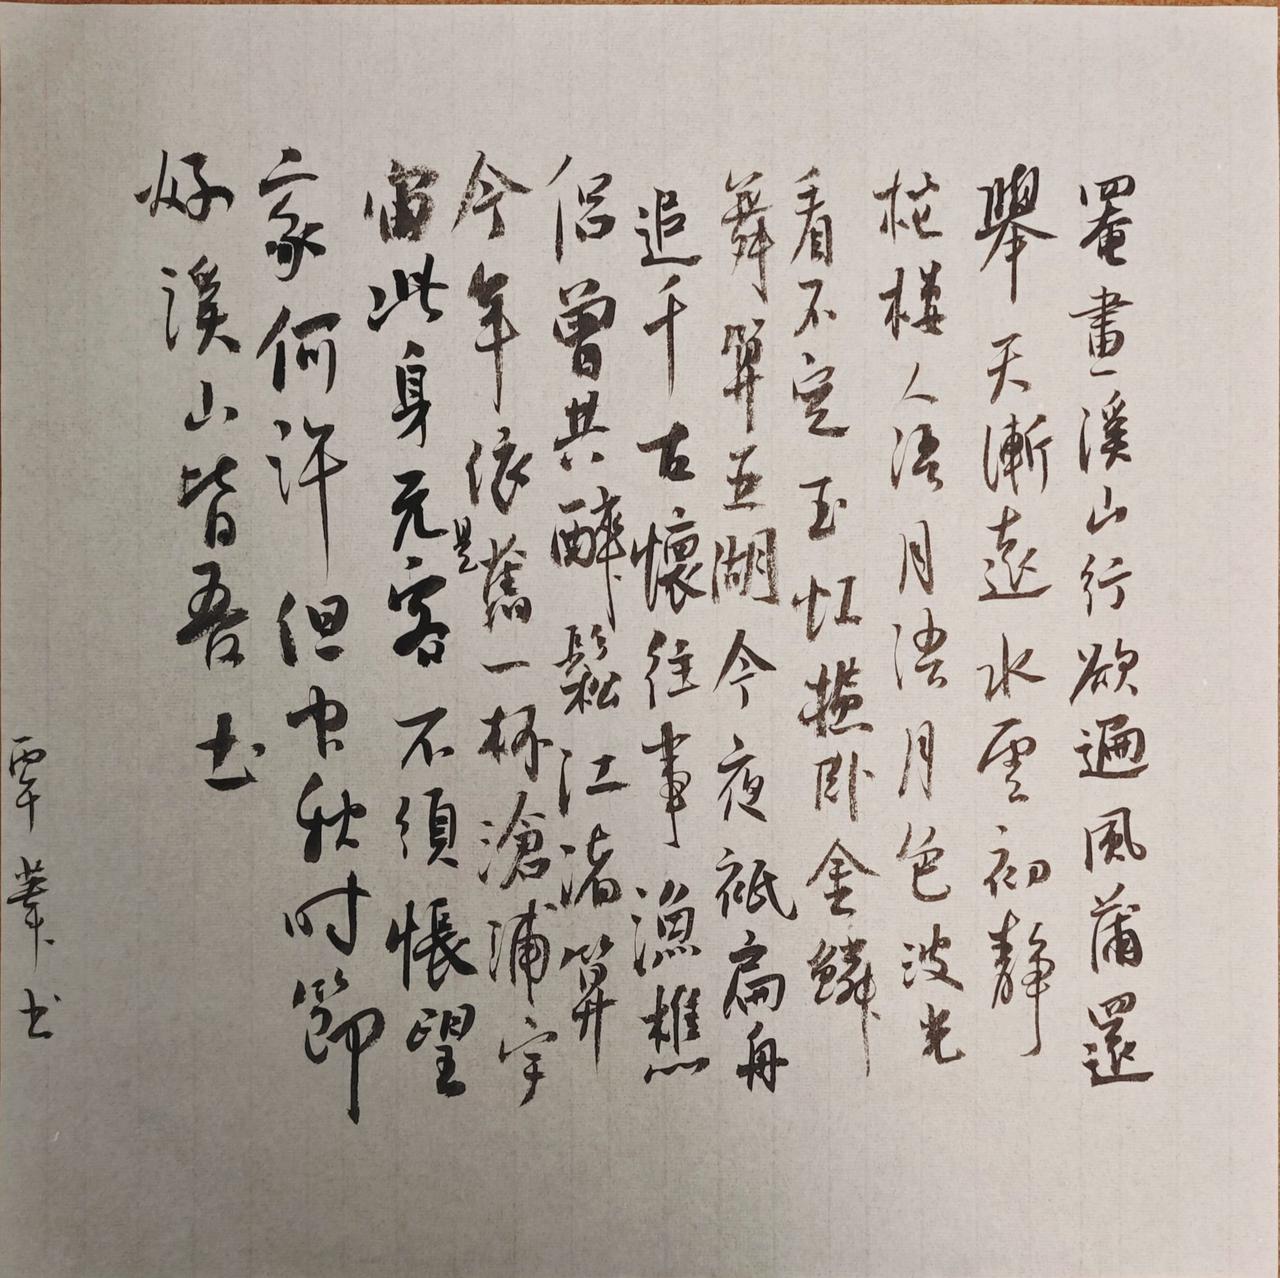 罨畫溪山行欲遍風蒲還
舉天漸遠水雲初靜
柁樓人语月语月色波光
看不定玉虹橫卧金鱗
舞算五湖今夜祇扁舟
追千古懷往事漁樵
侣曾共醉鬆江渚算
今年依舊一杯滄浦宇
是
宙此身元客不須悵望
家何許但中秋时節
好溪山皆吾土
覃葦书